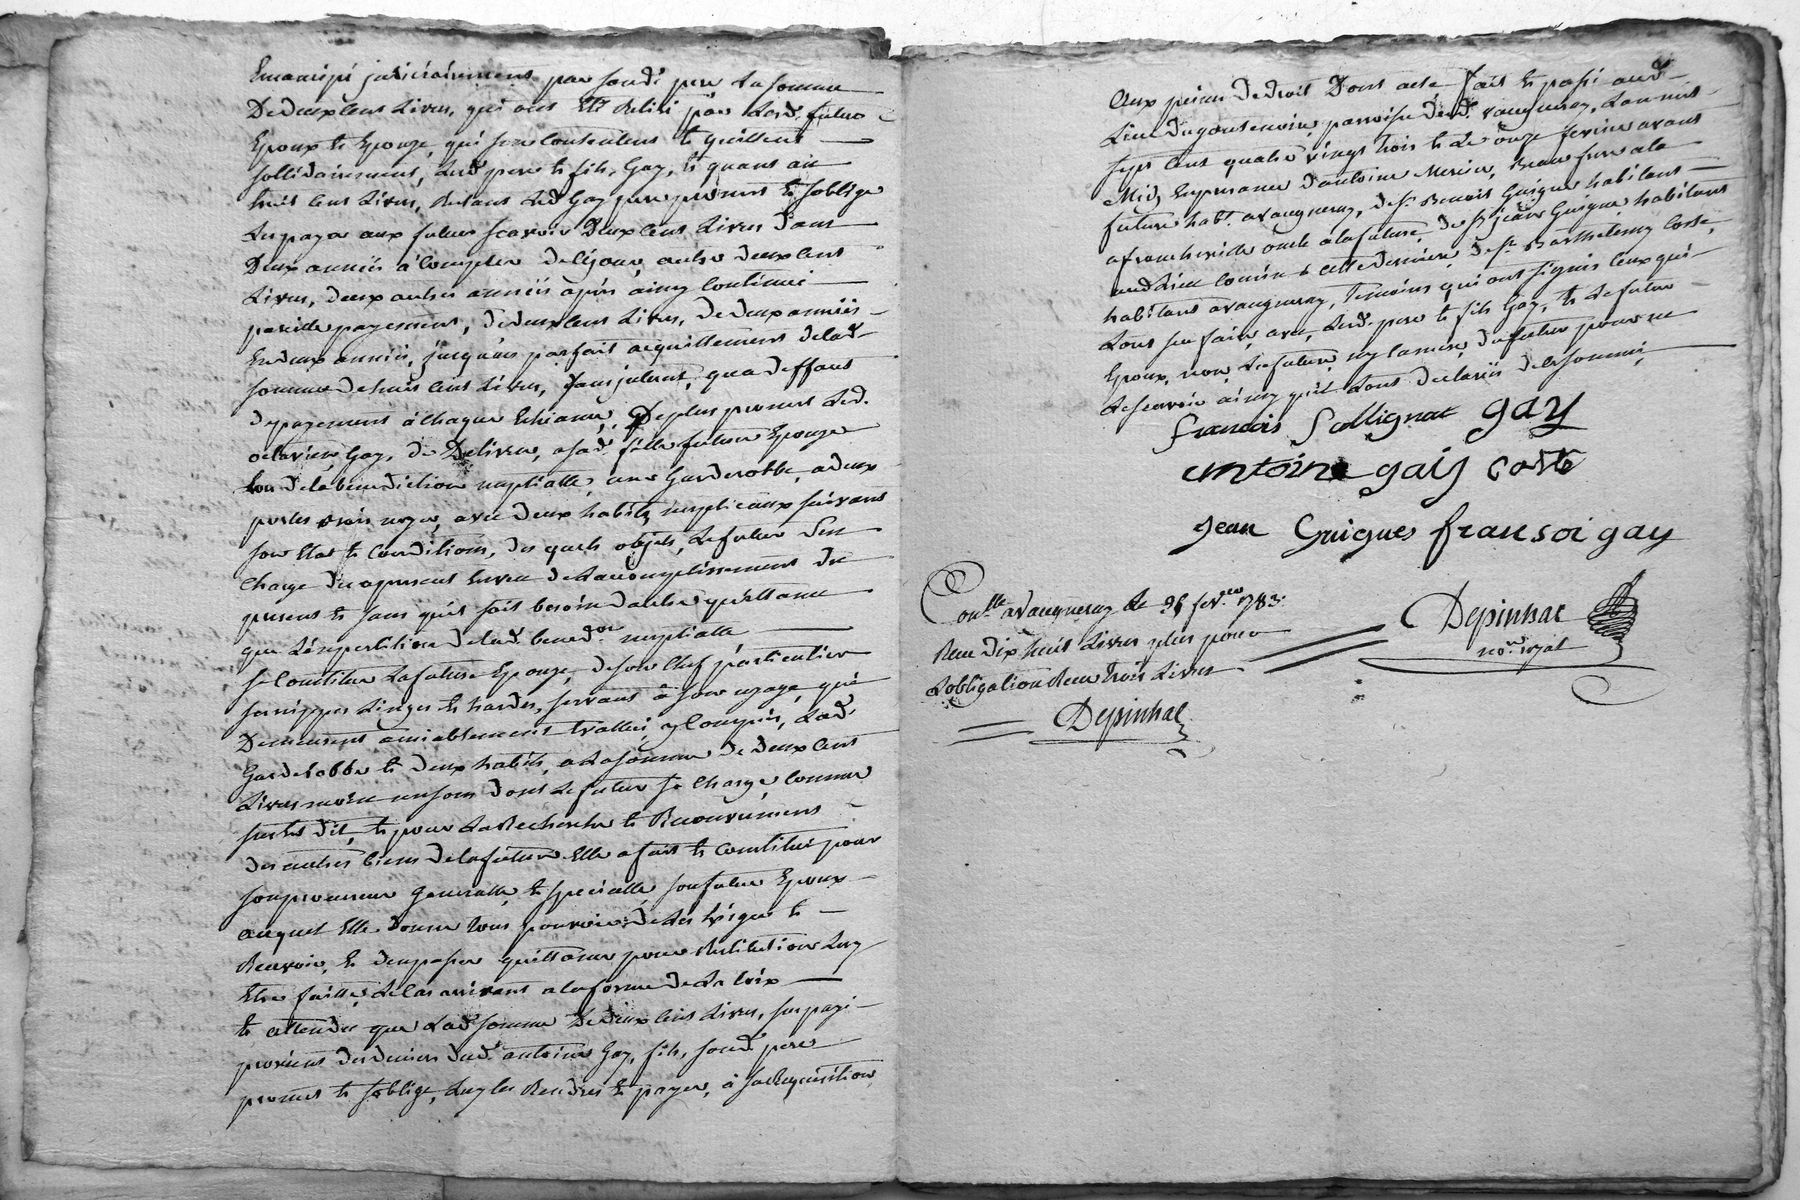 Emancipé judiciairement par sond. pere La somme
De deux Cent Livres, qui ont Eté Retiré par Lesd. futurs
Epoux et Epouze, qui s'en Contentent et quittent
sollidairement, Lesd. pere et fils, Gay, et quant aux
huit Cent Livres, Restant Led. Gay pere promet et s'oblige
Les payer aux futurs scavoir Deux Cent Livres dans
Deux années à Compter de Cejour, autre deux Cent
Livres, deux autres années après ainsy Continuer
pareille payement, de deux Cent Livres, De deux années
En deux années, jusqu'au parfait acquittement delad.
somme de huit Cent Livres, sans jnterest, qu'a deffaut
de payement à Chaque Echeance, De plus promet Led.
Gay, De Delivrer, asad. fille future Epouze
Lors de la benediction nuptialle, une Garderobbe, a deux
portes bois noyer, avec deux habits nuptieaux suivant
son Etat et Conditions, des quels objets, Le futur s'en
Charge des apresent En vertu de L'accomplissement du
present et sans qu'il soit besoin d'autre quittance
que L'impartition delad. bened.on nuptialle
se Constitue La future Epouze, de son Chef particulier
ses nippes Linges et hardes, servant à son uzage, qui
Demeurent amiablement Evallué, y Compris, Lad.
Garderobbe et deux habits, a La somme de deux Cent
Livres dont Le futur se Charge Comme
sus Est dit, et pour La Recherche et Recouvrement
des autres biens de la future Elle a fait et Constitué pour
son procureur General et special son futur Epoux
auquel Elle donne tous pouvoirs de Les Exiger et
Recevoir, et d'en passer quittance pour Restitution Luy
Etre faitte, Le Cas arrivant a la forme de La Loix
Et attendu que Lad. somme De deux Cent Livres, sus payé
provient des deniers dud. antoine Gay, fils, sond. pere
promet et s'oblige, Luy les Rendre et payer, à sa Requisition
aux peines de droit Dont acte fait et passé aud.
Lieu du paroisse dud. vaugneray, L'an mil
sept Cent quatre vingt trois et Le onze fevrier avant
Midy, En presence d'antoine Mercier, Beau frere a la
future hab.t a vaugneray, de s.r Benoit Guigue habitant
a francheville oncle a la future, de s.r jean Guigue habitant
aud. Lieu Cousin a cette derniere, de s.r Barthelemy Coste,
habitant a vaugneray, Temoins qui ont signés Ceux qui
Lont sçu faire, avec Lesd. pere et fils Gay, et Le futur
Epoux, non La future, ny La mere, du futur pour ne
Le scavoir ainsy qu'il Lont declaréz de Ce sommés
francois Sollignat gay
antoine gaiy coste
jean Guigues fransoi gay
Con.lle a Vaugneray Le 25 fev.er 1783.
Reçu Dix huit Livres plus pour
L'obligation Reçu trois Livres
Depinhac
Depinhac
no.re royal